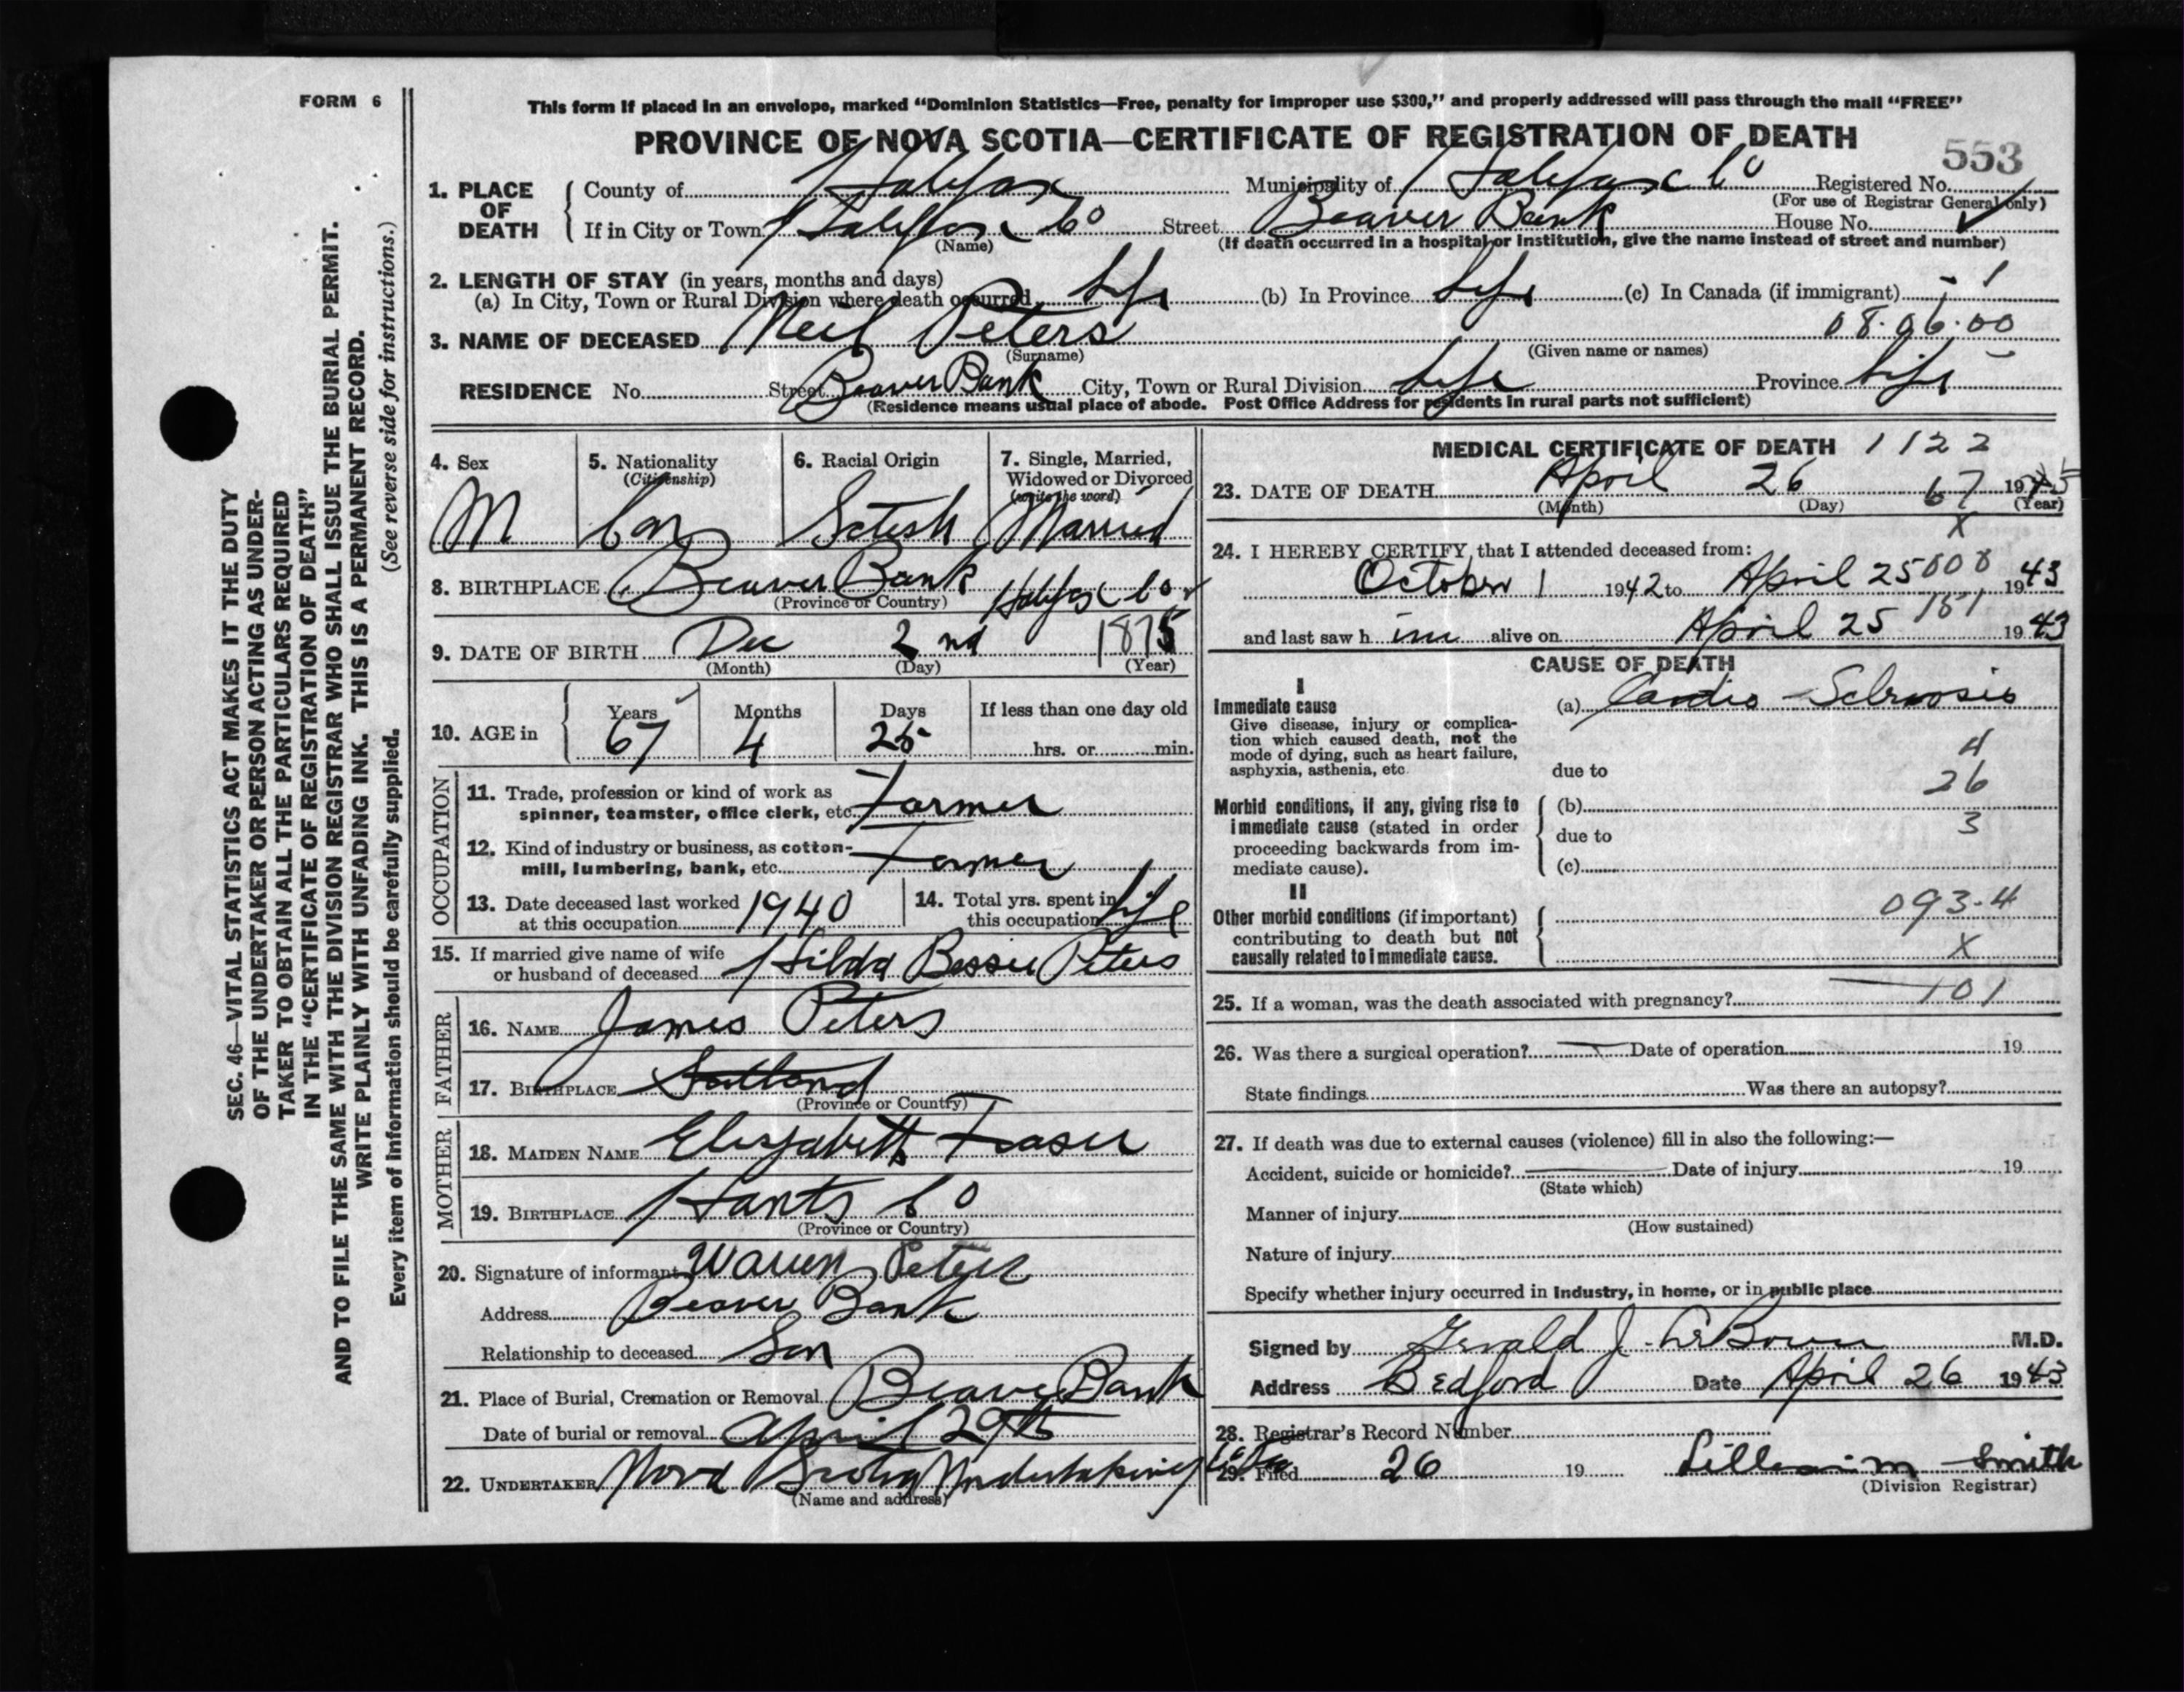 FORM 6
This form if placed in an envelope, marked “Dominion Statistics—Free, penalty for improper use $300,” and properly addressed will pass through the mail “FREE”
PROVINCE OF NOVA SCOTIA—CERTIFICATE OF REGISTRATION OF DEATH
553
1. PLACE OF DEATH
County of Halifax Municipality of Halifax Co Registered No.
(For use of Registrar General only)
If in City or Town Halifax Co Street Beaver Bank House No.
(Name) (If death occurred in a hospital or institution, give the name instead of street and number)
2. LENGTH OF STAY (in years, months and days)
(a) In City, Town or Rural Division where death occurred Life (b) In Province Life (c) In Canada (if immigrant)
08.06.00
3. NAME OF DECEASED Neil Peters
(Surname) (Given name or names)
RESIDENCE No. Street Beaver Bank City, Town or Rural Division Life Province Life
(Residence means usual place of abode. Post Office Address for residents in rural parts not sufficient)
4. Sex M
5. Nationality (Citizenship) Can
6. Racial Origin Scotish
7. Single, Married, Widowed or Divorced (write the word) Married
8. BIRTHPLACE Beaver Bank Halifax Co
(Province or Country)
9. DATE OF BIRTH Dec 2nd 1875
(Month) (Day) (Year)
10. AGE in Years 67 Months 4 Days 25 If less than one day old
hrs. or min.
OCCUPATION
11. Trade, profession or kind of work as spinner, teamster, office clerk, etc. Farmer
12. Kind of industry or business, as cotton-mill, lumbering, bank, etc. Farmer
13. Date deceased last worked at this occupation 1940
14. Total yrs. spent in this occupation Life
15. If married give name of wife or husband of deceased Hilda Bessie Peters
FATHER
16. NAME James Peters
17. BIRTHPLACE Scotland
(Province or Country)
MOTHER
18. MAIDEN NAME Elizabeth Fraser
19. BIRTHPLACE Hants Co
(Province or Country)
20. Signature of informant Warren Peters
Address Beaver Bank
Relationship to deceased Son
21. Place of Burial, Cremation or Removal Beaver Bank
Date of burial or removal April 29th
22. UNDERTAKER Nova Scotia Undertaking
(Name and address)
MEDICAL CERTIFICATE OF DEATH 1122
23. DATE OF DEATH April 26 67 19
(Month) (Day) (Year)
X
24. I HEREBY CERTIFY, that I attended deceased from:
October 1 1942 to April 25 000 1943
and last saw him alive on April 25 151 1943
CAUSE OF DEATH
I
Immediate cause
Give disease, injury or complication which caused death, not the mode of dying, such as heart failure, asphyxia, asthenia, etc.
(a) Cardio-Sclerosis
4
due to
26
Morbid conditions, if any, giving rise to immediate cause (stated in order proceeding backwards from immediate cause).
(b)
3
due to
(c)
II
Other morbid conditions (if important) contributing to death but not causally related to immediate cause.
093.4
X
25. If a woman, was the death associated with pregnancy? 101
26. Was there a surgical operation? Date of operation 19
State findings Was there an autopsy?
27. If death was due to external causes (violence) fill in also the following:—
Accident, suicide or homicide? Date of injury 19
(State which)
Manner of injury
(How sustained)
Nature of injury
Specify whether injury occurred in industry, in home, or in public place
Signed by Gerald J. M.D.
Address Bedford Date April 26 1943
28. Registrar's Record Number
29. Filed 26 19 Lillian M Smith
(Division Registrar)
SEC. 46—VITAL STATISTICS ACT MAKES IT THE DUTY
OF THE UNDERTAKER OR PERSON ACTING AS UNDER-
TAKER TO OBTAIN ALL THE PARTICULARS REQUIRED
IN THE “CERTIFICATE OF REGISTRATION OF DEATH”
AND TO FILE THE SAME WITH THE DIVISION REGISTRAR WHO SHALL ISSUE THE BURIAL PERMIT.
WRITE PLAINLY WITH UNFADING INK. THIS IS A PERMANENT RECORD.
(See reverse side for instructions.)
Every item of information should be carefully supplied.